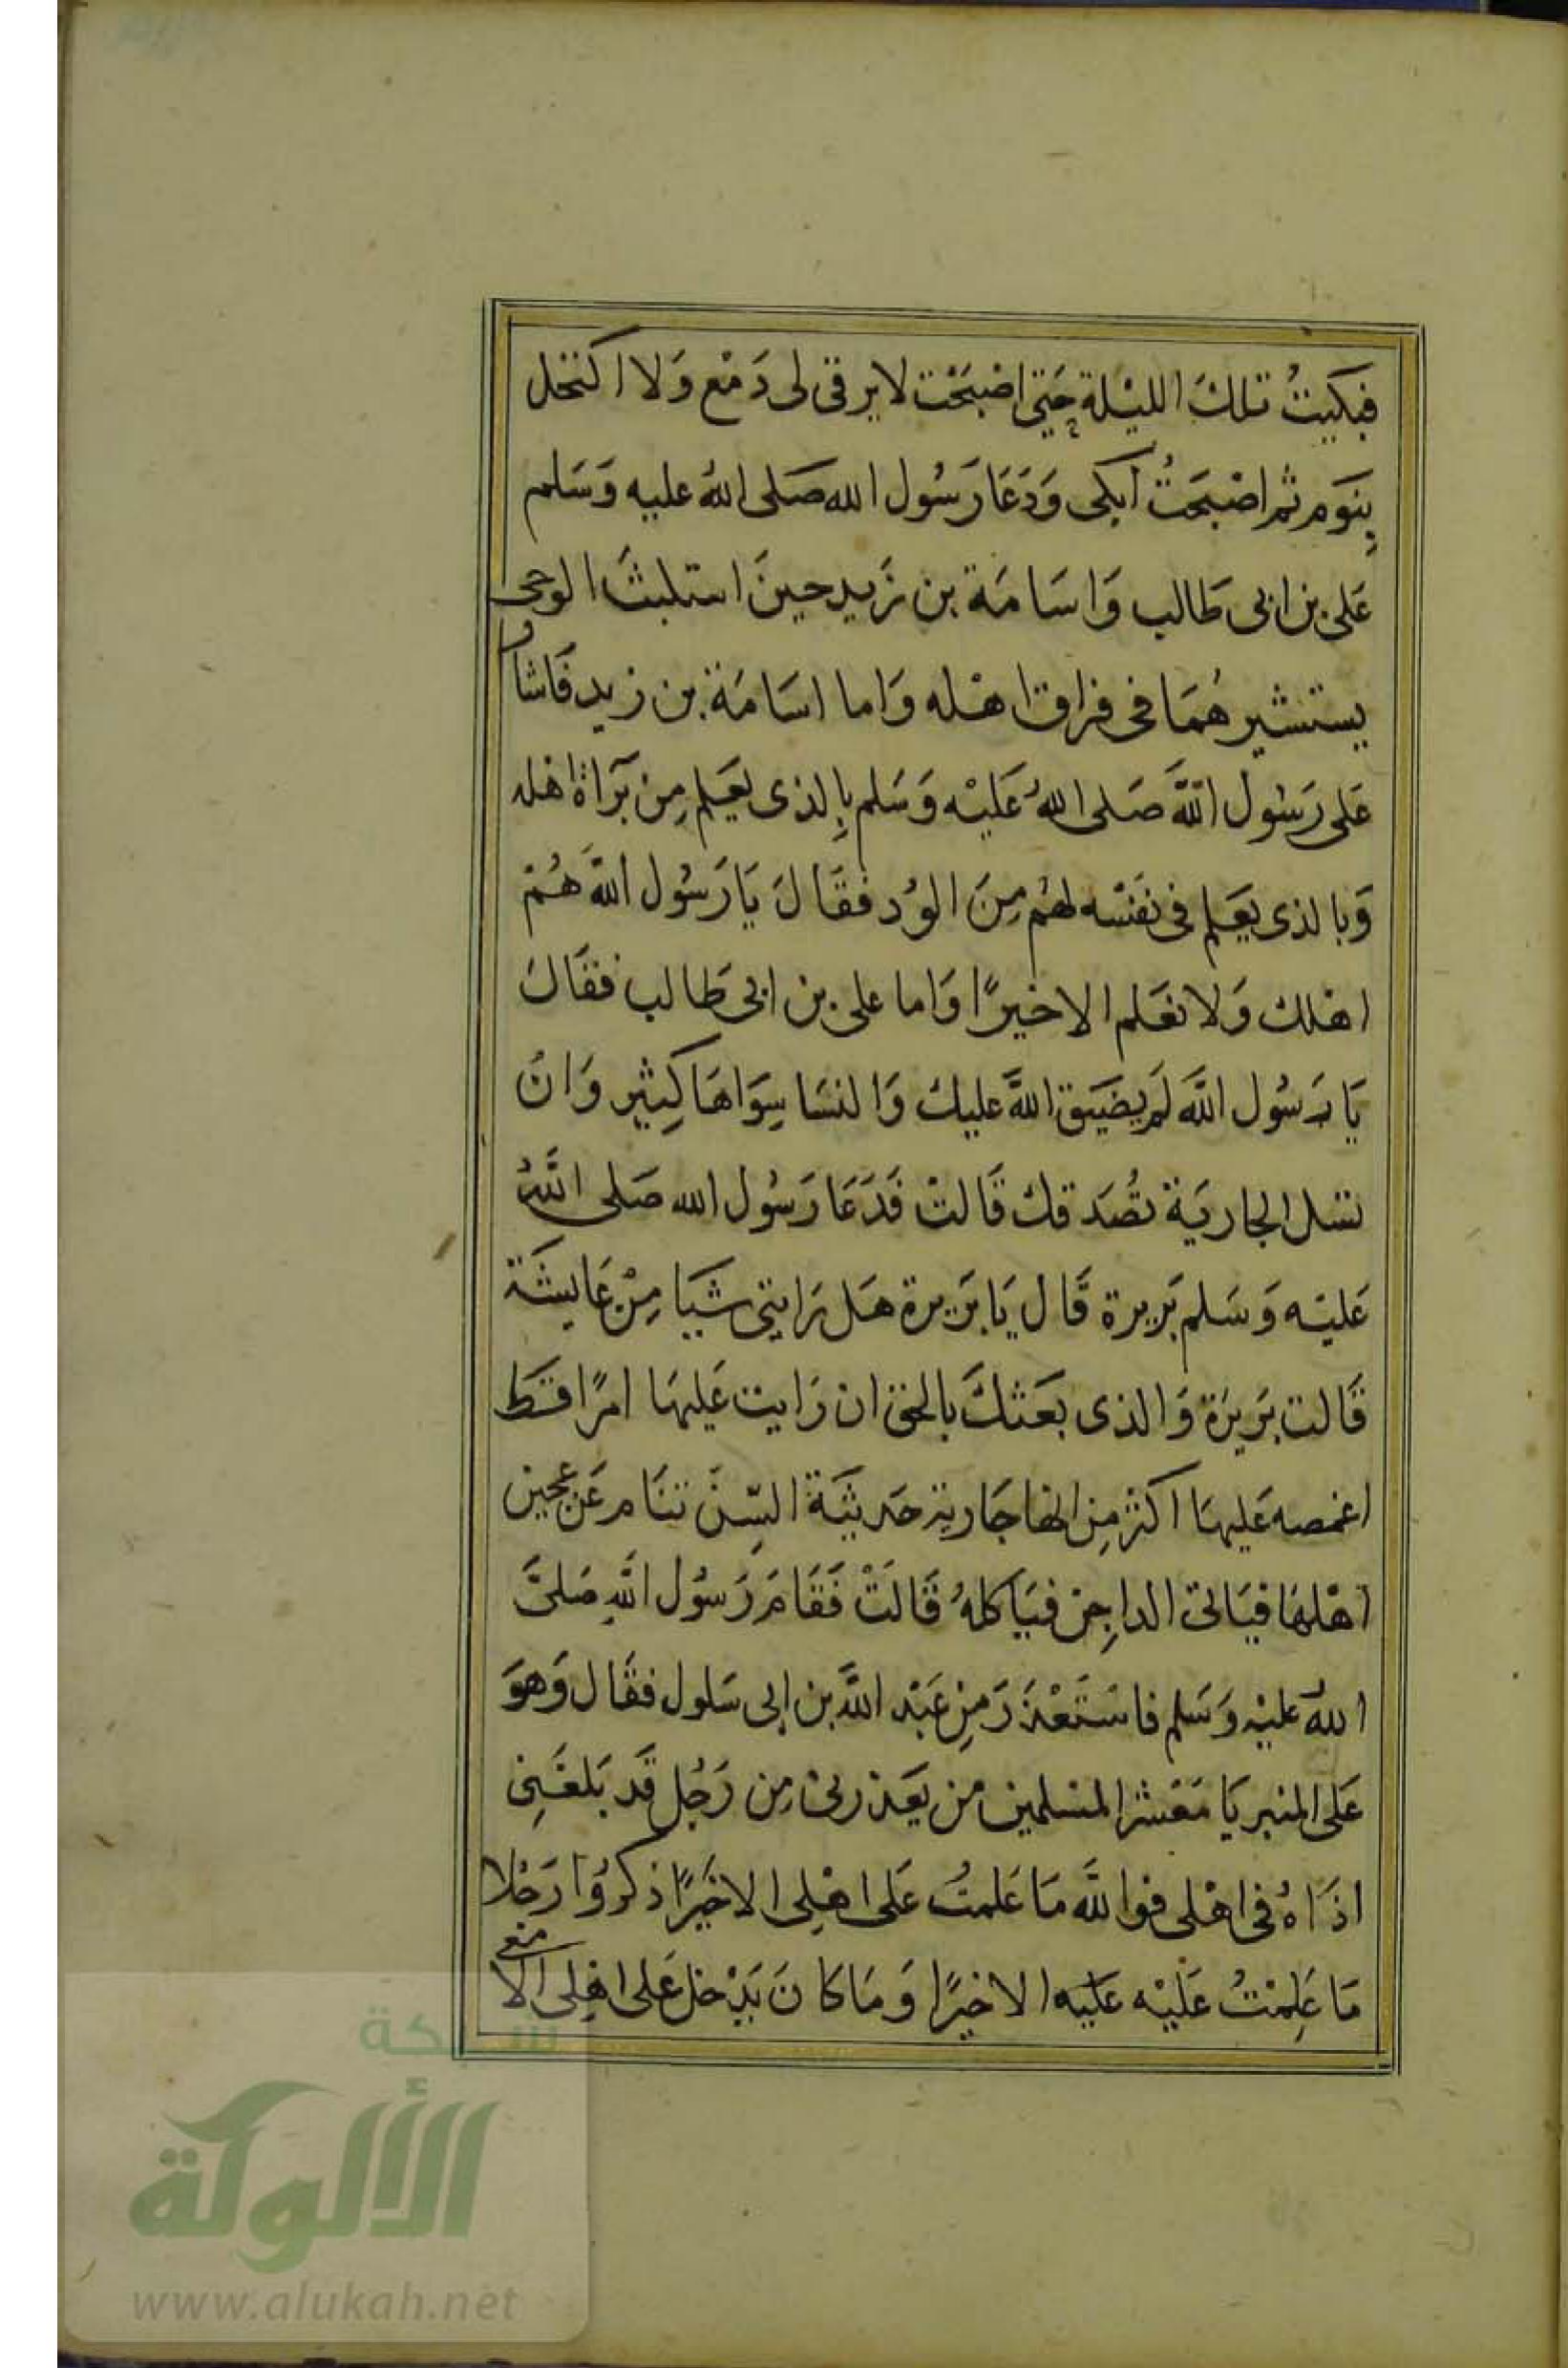 فبكيتُ تلكَ الليْلة حَتى اصْبَحْت لا يرقى لى دَمْع وَلا اكتحل
بِنَوم ثم اصْبحَتُ أبكى وَدَعَا رَسُول الله صَلى اللهُ عليه وَسَلم
عَلى بن ابى طَالب وَاسَامَة بن زَيد حينَ استلبثَ الوحى
يستشيرهُمَا فى فراق اهْله وَاما اسَامَة بن زيد فَاشار
عَلى رَسُول اللَّه صَلى اللهُ عَليْه وَسَلم بِالذى يعَلم مِن بَرآاة اهله
وَبالذى يعَلم فى نفَسْه لهُم مِنَ الوُد فقَالَ يَا رَسُول اللَّه هُمْ
اهلك وَلا نعَلم الا خيرًا وَاما على بن ابى طَالب فقَالَ
يَا رَسُول اللَّه لَم يضَيق اللَّه عليك وَالنسَا سِوَاهَا كِثير وَانْ
تسَل الجاريَة تصُدَقك قَالتْ فَدَعَا رَسُول الله صَلى اللَّهُ
عَليْه وَسَلم بَريرة قَال يَا بَريرة هَل رَايتى شيَيا مِنْ عَايشَة
قَالت بَريرَة وَالذى بعَثكَ بالحق ان رَايت عَليهَا امرًا قَط
اغمصه عَليهَا اكثر مِن انها جَارية حَديثَة السِّن تنَام عَن عجين
اهْلهَا فيَاتى الداجِن فيَاكلهُ قَالَتْ فَقَامَ رَسُول اللَّهِ صَلىَّ
اللهُ عليْه وَسَلم فاسْتَعْذَرَ مِن عَبْد اللَّه بن ابى سَلول فقَال وَهوَ
عَلى المنبر يَا مَعْشر المسْلمين مَن يعَذرنى مِن رَجُل قَد بَلغَنِى
اذَاهُ فى اهْلى فوا للَّه مَا عَلمتُ عَلى اهْلِى الا خَيرًا ذكرُوُا رَجُلا
مَا عَلِمْتُ عَليْه عَليه الا خيرًا وَمَا كانَ يَدْخل عَلى اهْلِى الا معى
شبكة
الألوكة
www.alukah.net